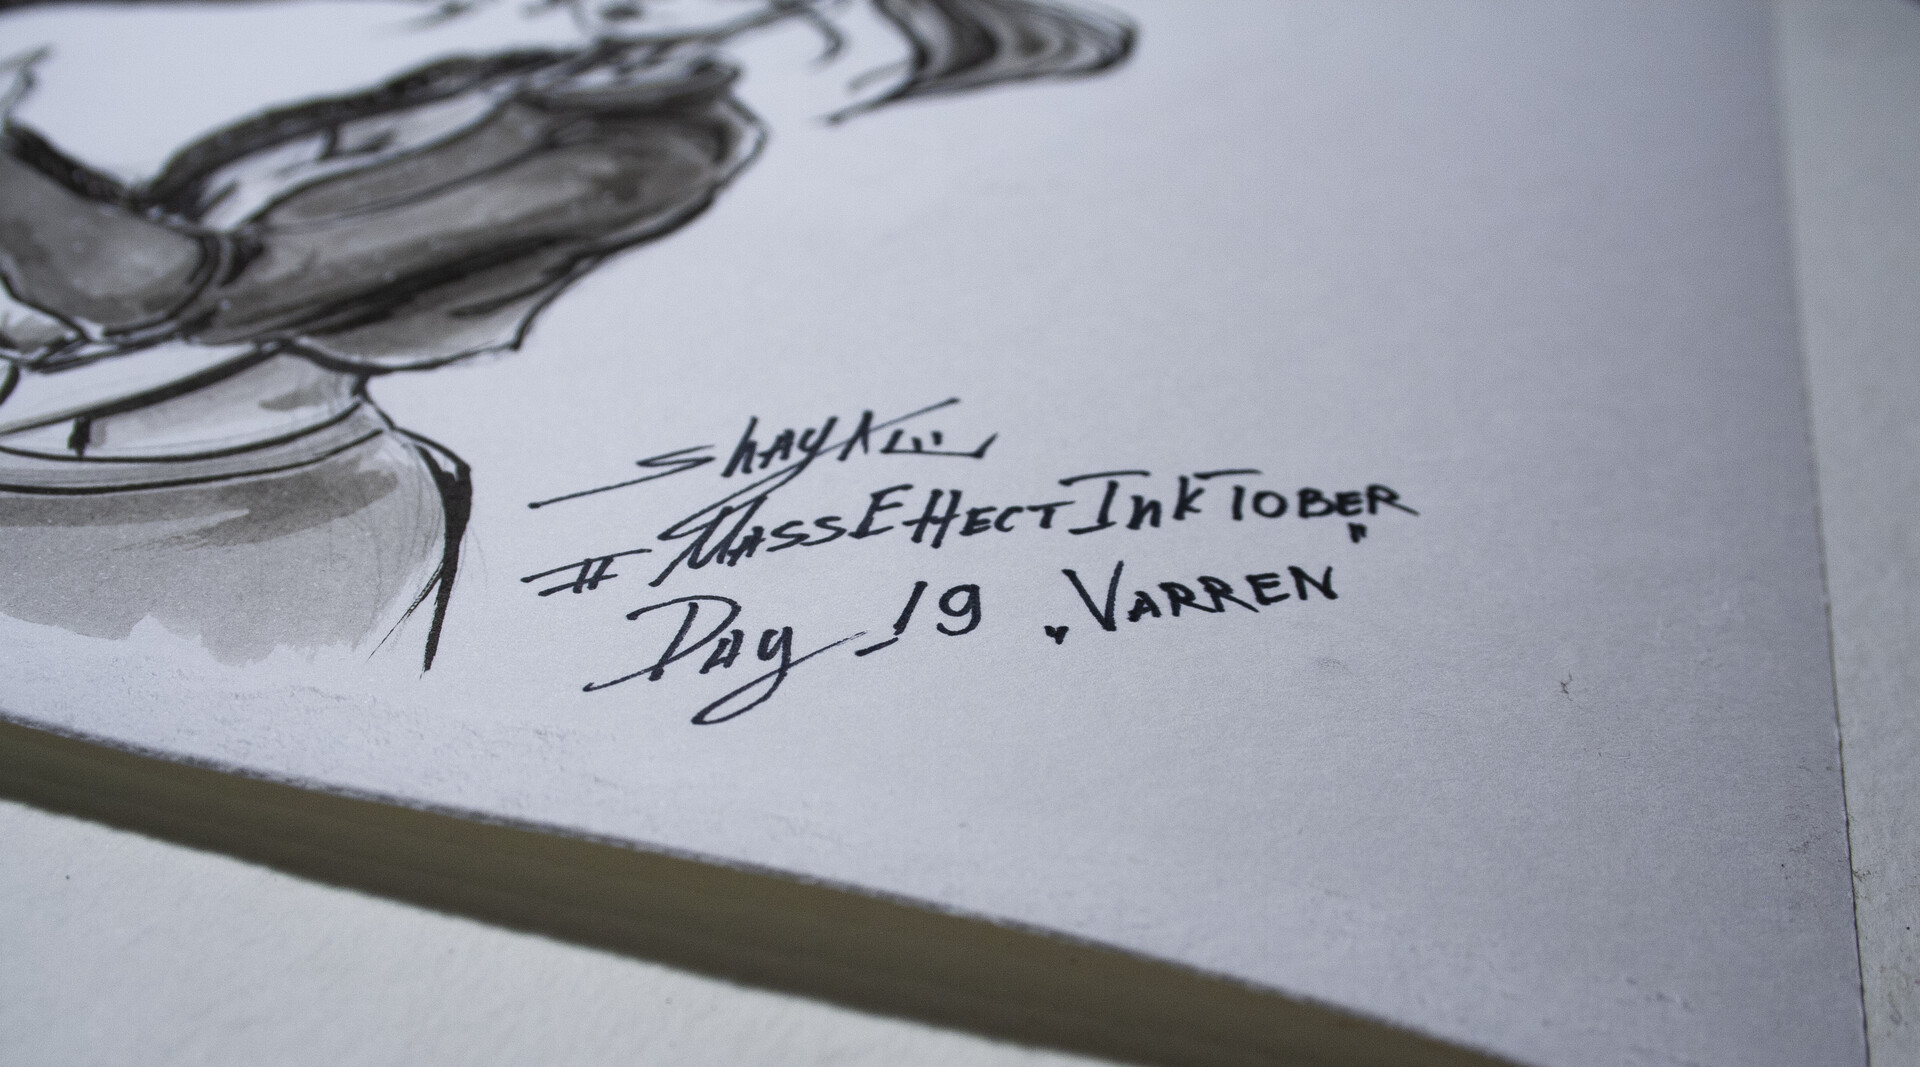 Shayk
#MassEffectInktober
Day 19 „Varren"